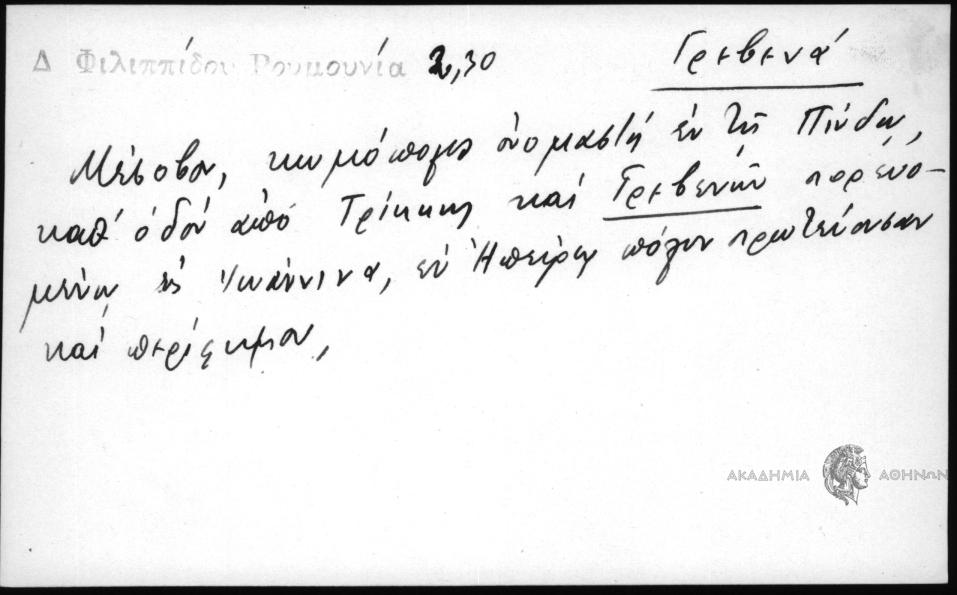 Δ Φιλιππίδου Ρουμουνία 2,30
Γρεβενά
Μέτσοβον, κωμόπολις ὀνομαστή ἐν τῇ Πίνδῳ,
καθ' ὁδόν ἀπό Τρίκκης καί Γρεβενῶν πορευο-
μένῳ εἰς Ἰωάννινα, ἐν Ἠπείρῳ πόλιν πρωτεύουσαν
καί περίφημον,
ΑΚΑΔΗΜΙΑ ΑΘΗΝΩΝ